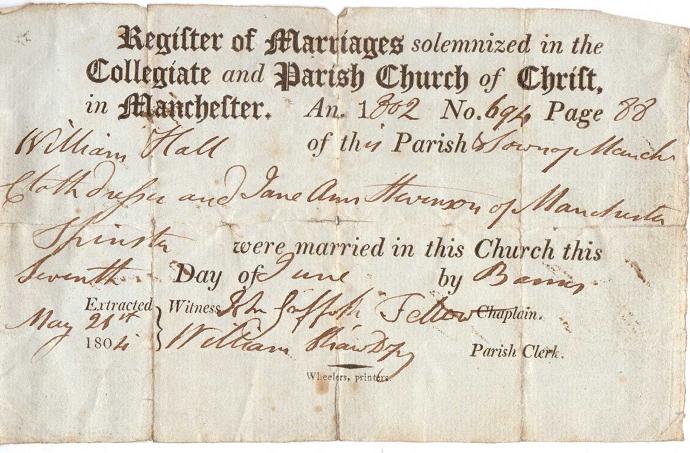 Regiſter of Marriages solemnized in the
Collegiate and Pariſh Church of Chriſt,
in Mancheſter. An. 1802 No. 694 Page 88
William Hall of this Parish & Town of Manchr
Cloth dresser and Jane Ann of Manchester
Spinster were married in this Church this
Seventh Day of June by Banns
Extracted Witness John Griffith Fellow Chaplain.
May 21st William Shaw Dpy Parish Clerk.
1804
Wheelers, printers.